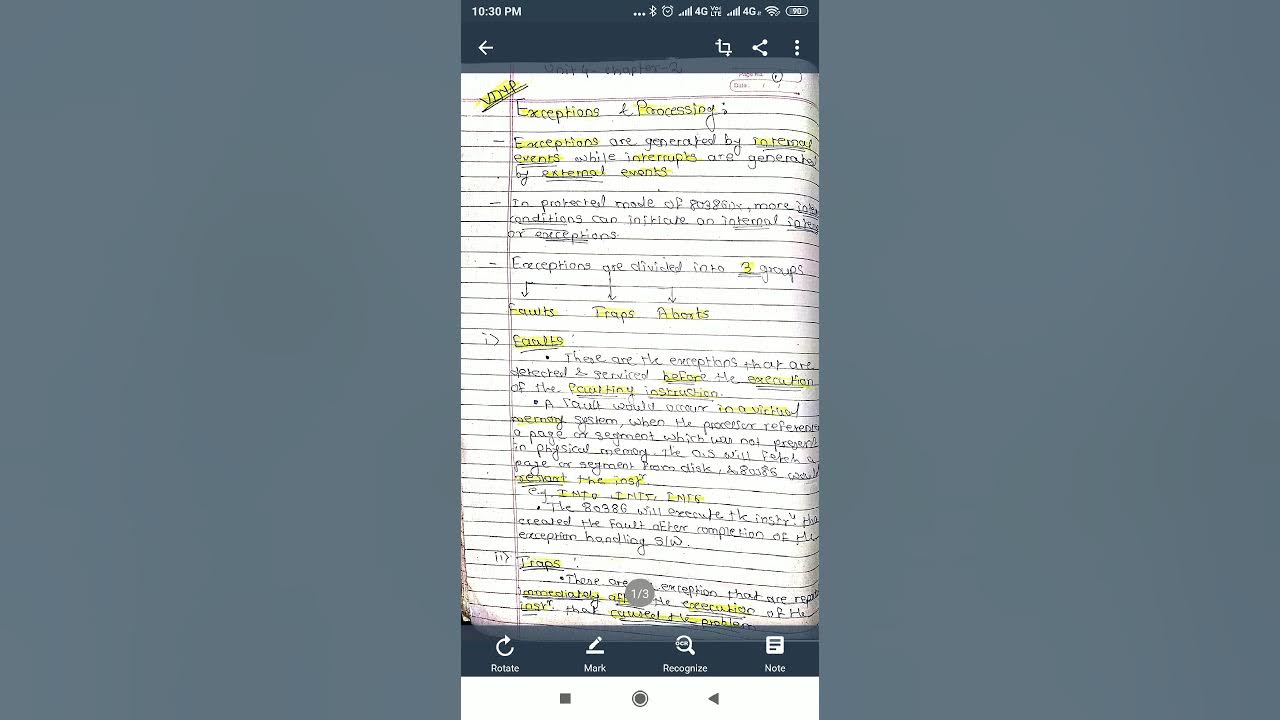 10:30 PM
4G VoLTE 4G 90
Unit 4 - chapter-2
Page No. 1
Date: / /
VIMP
Exceptions & Processing:
- Exceptions are generated by internal
events while interrupts are generated
by external events
- In protected mode of 80386Dx, more
conditions can initiate an internal
or exceptions.
- Exceptions are divided into 3 groups
Faults Traps Aborts
i) Faults:
• These are the exceptions that are
detected & serviced before the execution
of the faulting instruction.
• A fault would occur in a virtual
memory system, when the processor
a page or segment which was not present
in physical memory. The O.S will fetch
page or segment from disk, & 80386 would
restart the instr
e.g. INT0, INT5, INT6
• The 80386 will execute the instrn
created the fault after completion of the
exception handling S/W.
ii) Traps:
• These are exception that are
immediately the execution of the
instn that caused the problem
1/3
Rotate Mark Recognize Note
OCR